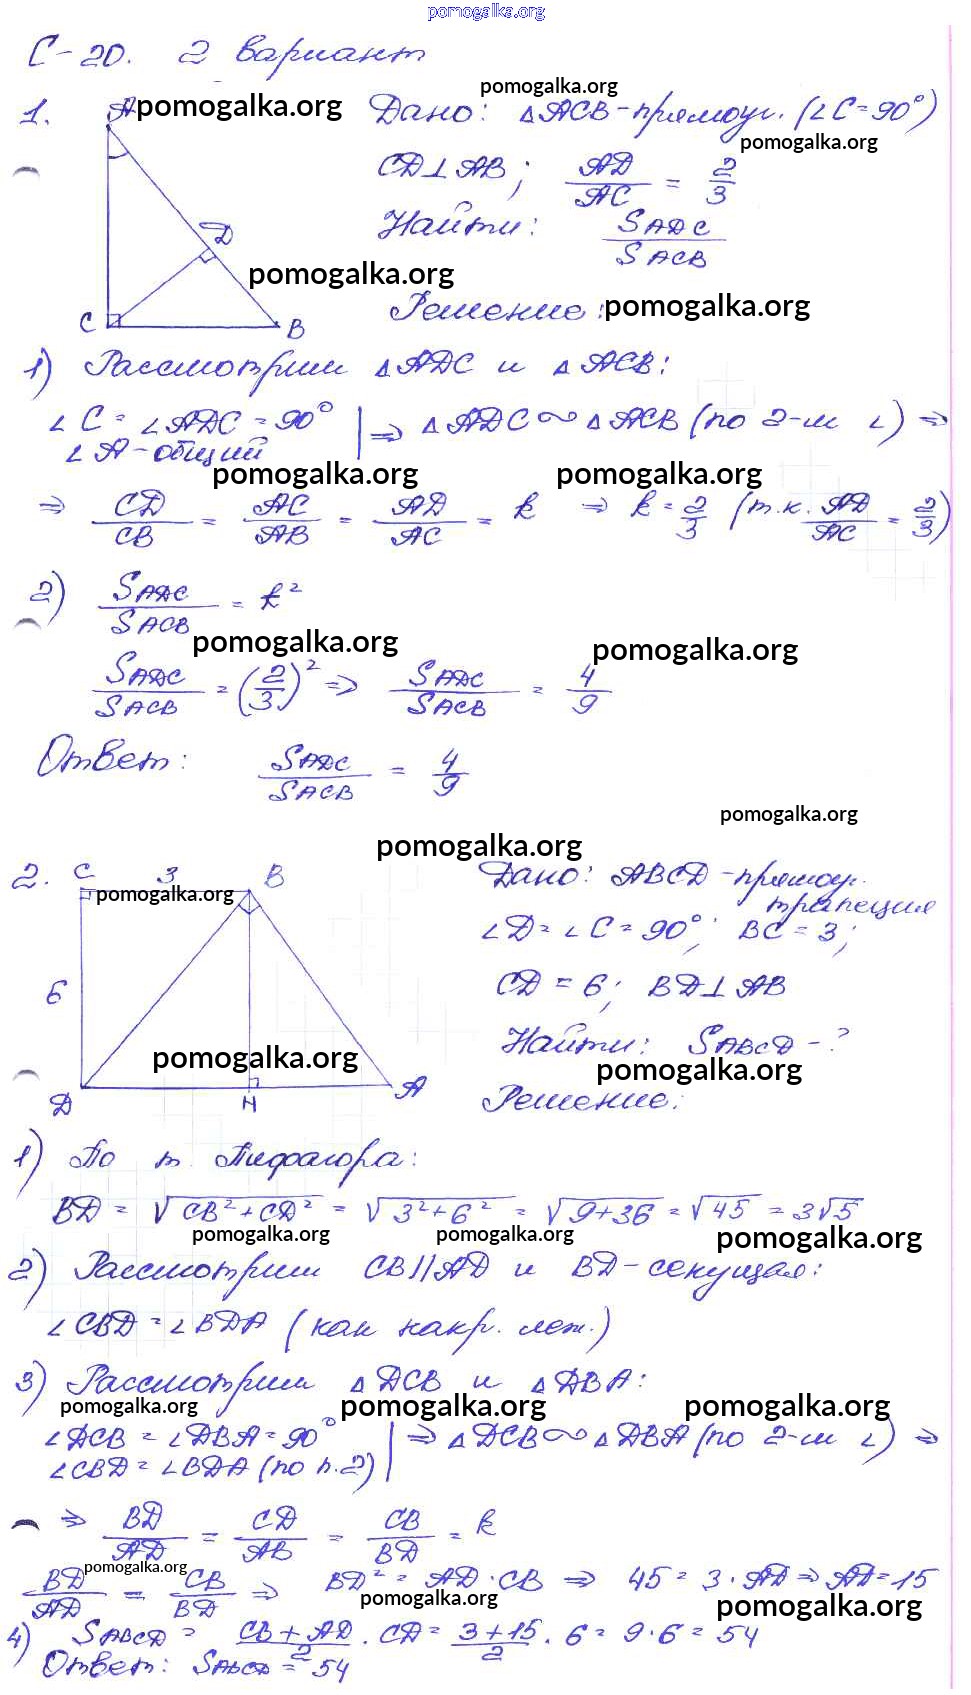 pomogalka.org
С-20. 2 вариант
pomogalka.org
1. A pomogalka.org Дано: △ACB-прямоуг. (∠C=90°)
pomogalka.org
CD⊥AB; AD/AC = 2/3
Найти: S_ADC/S_ACB
D
pomogalka.org
Решение: pomogalka.org
C B
1) Рассмотрим △ADC и △ACB:
∠C = ∠ADC = 90° | ⇒ △ADC ∾ △ACB (по 2-м ∠) ⇒
∠A-общий
pomogalka.org pomogalka.org
⇒ CD/CB = AC/AB = AD/AC = k ⇒ k = 2/3 (т.к. AD/AC = 2/3)
2) S_ADC/S_ACB = k²
pomogalka.org pomogalka.org
S_ADC/S_ACB = (2/3)² ⇒ S_ADC/S_ACB = 4/9
Ответ: S_ADC/S_ACB = 4/9
pomogalka.org
pomogalka.org
2. C 3 B Дано: ABCD-прямоуг.
pomogalka.org трапеция
∠D = ∠C = 90°; BC = 3;
6 CD = 6; BD⊥AB
Найти: S_ABCD - ?
pomogalka.org pomogalka.org
D H A Решение:
1) По т. Пифагора:
BD = √CB²+CD² = √3²+6² = √9+36 = √45 = 3√5
pomogalka.org pomogalka.org pomogalka.org
2) Рассмотрим CB||AD и BD-секущая:
∠CBD = ∠BDA (как накр. леж.)
3) Рассмотрим △DCB и △DBA:
pomogalka.org pomogalka.org pomogalka.org
∠DCB = ∠DBA = 90° | ⇒ △DCB ∾ △DBA (по 2-м ∠) ⇒
∠CBD = ∠BDA (по п.2)
⇒ BD/AD = CD/AB = CB/BD = k
pomogalka.org
BD/AD = CB/BD ⇒ BD² = AD·CB ⇒ 45 = 3·AD ⇒ AD = 15
pomogalka.org pomogalka.org
4) S_ABCD = CB+AD/2 · CD = 3+15/2 · 6 = 9·6 = 54
Ответ: S_ABCD = 54